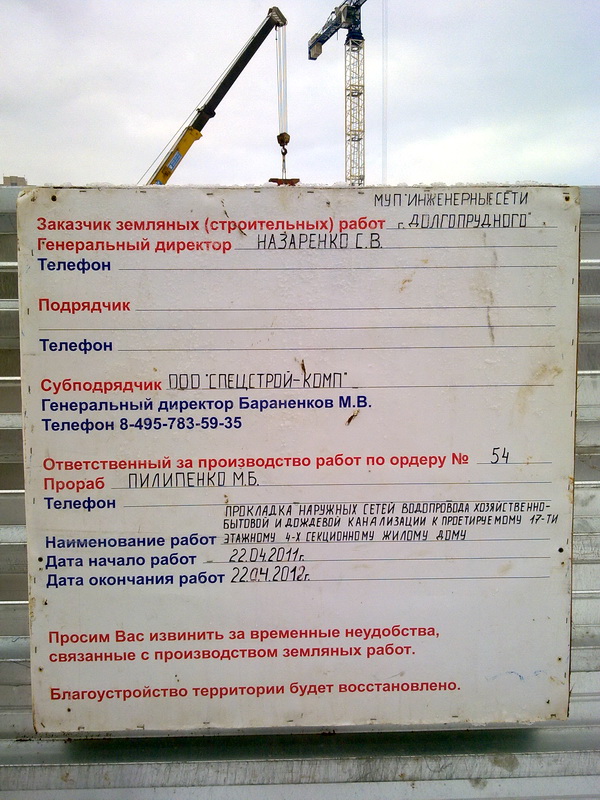 МУП "ИНЖЕНЕРНЫЕ СЕТИ
Заказчик земляных (строительных) работ г. ДОЛГОПРУДНОГО"
Генеральный директор НАЗАРЕНКО С.В.
Телефон
Подрядчик
Телефон
Субподрядчик ООО "СПЕЦСТРОЙ-КОМП"
Генеральный директор Бараненков М.В.
Телефон 8-495-783-59-35
Ответственный за производство работ по ордеру № 54
Прораб ПИЛИПЕНКО М.Б.
Телефон
ПРОКЛАДКА НАРУЖНЫХ СЕТЕЙ ВОДОПРОВОДА ХОЗЯЙСТВЕННО-
БЫТОВОЙ И ДОЖДЕВОЙ КАНАЛИЗАЦИИ К ПРОЕТИРУЕМОМУ 17-ТИ
Наименование работ ЭТАЖНОМУ 4-Х СЕКЦИОННОМУ ЖИЛОМУ ДОМУ
Дата начало работ 22.04.2011г.
Дата окончания работ 22.04.2012г.
Просим Вас извинить за временные неудобства,
связанные с производством земляных работ.
Благоустройство территории будет восстановлено.